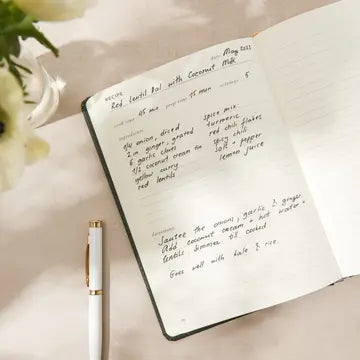 RECIPE: Red Lentil Dal with Coconut Milk
DATE May 2023
cook time 45 min prep time 15 min servings 5
ingredients
1/4 onion, diced
2 in ginger, grated
6 garlic cloves
1/2 coconut cream tin
yellow curry
red lentils
spice mix
turmeric
red chili flakes
spicy chili
salt + pepper
lemon juice
directions
Sautee the onions, garlic & ginger.
Add coconut cream + hot water +
lentils simmer till cooked
Goes well with kale & rice.